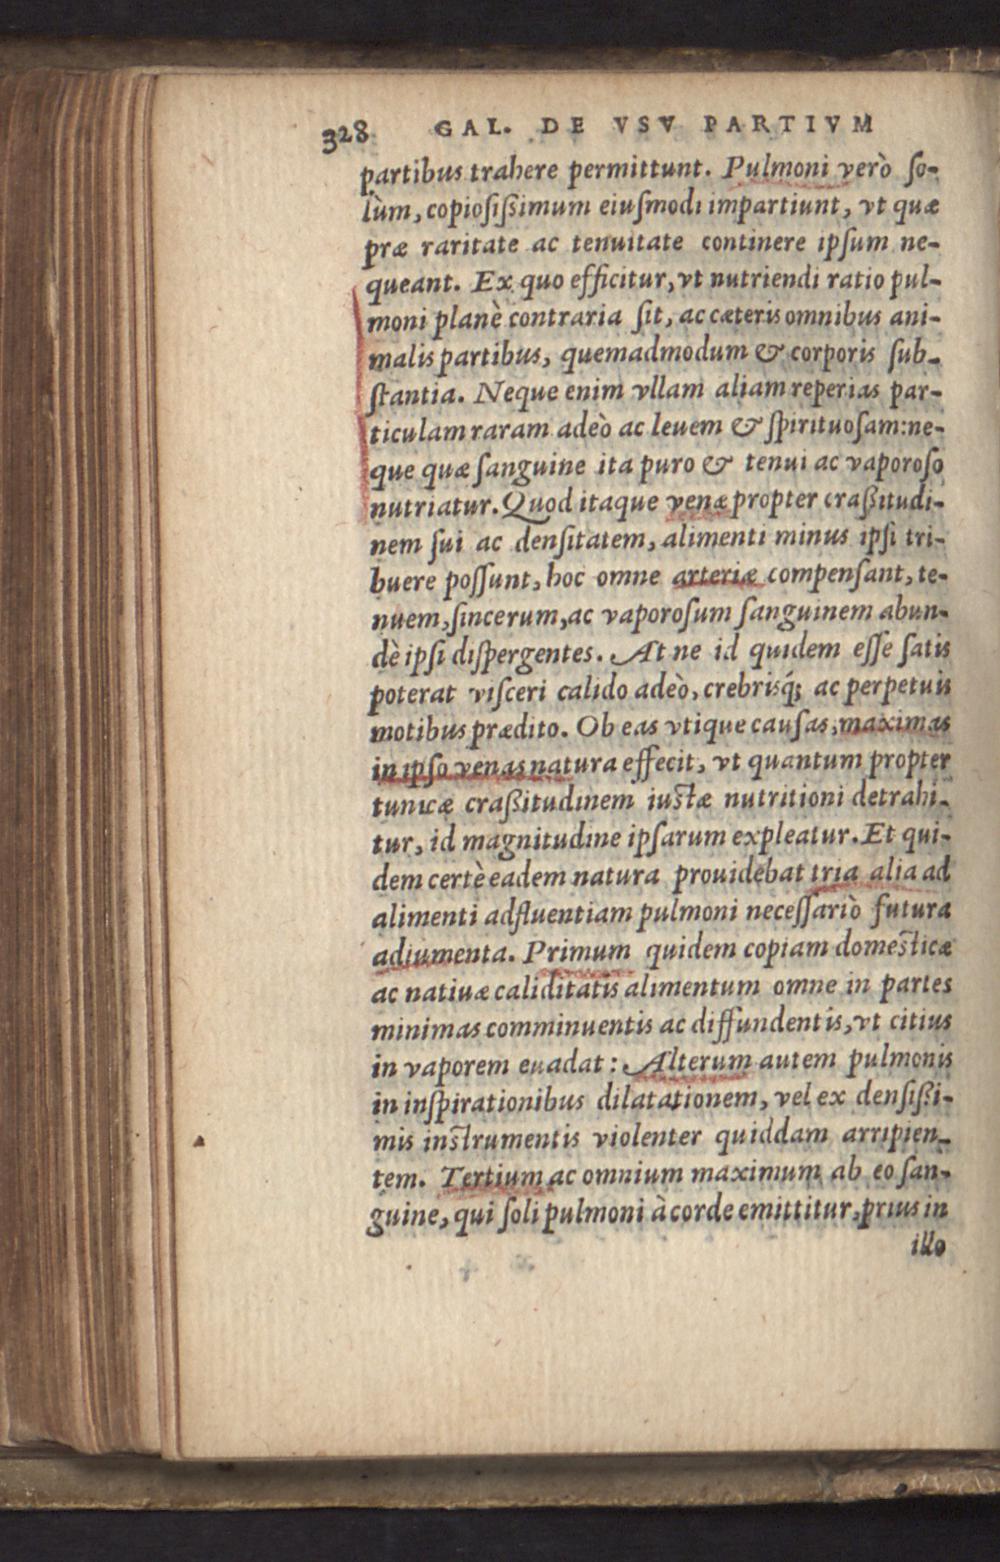 328 GAL. DE VSV PARTIVM
partibus trahere permittunt. Pulmoni verò ſo-
lùm, copioſiſſimum eiuſmodi impartiunt, vt quæ
præ raritate ac tenuitate continere ipſum ne-
queant. Ex quo efficitur, vt nutriendi ratio pul-
moni planè contraria ſit, ac cæteris omnibus ani-
malis partibus, quemadmodum & corporis ſub-
ſtantia. Neque enim vllam aliam reperias par-
ticulam raram adeò ac leuem & ſpirituoſam: ne-
que quæ ſanguine ita puro & tenui ac vaporoſo
nutriatur. Quod itaque venæ propter craßitudi-
nem ſui ac denſitatem, alimenti minus ipſi tri-
buere poſſunt, hoc omne arteriæ compenſant, te-
nuem, ſincerum, ac vaporoſum ſanguinem abun-
dè ipſi diſpergentes. At ne id quidem eſſe ſatis
poterat viſceri calido adeò, crebrisq́; ac perpetuis
motibus prædito. Ob eas vtique cauſas, maximas
in ipſo venas natura effecit, vt quantum propter
tunicæ craßitudinem iuſtæ nutritioni detrahi-
tur, id magnitudine ipſarum expleatur. Et qui-
dem certè eadem natura prouidebat tria alia ad
alimenti adfluentiam pulmoni neceſſariò futura
adiumenta. Primum quidem copiam domeſticæ
ac natiuæ caliditatis alimentum omne in partes
minimas comminuentis ac diffundentis, vt citius
in vaporem euadat: Alterum autem pulmonis
in inſpirationibus dilatationem, vel ex denſißi-
mis inſtrumentis violenter quiddam arripien-
tem. Tertium ac omnium maximum ab eo ſan-
guine, qui ſoli pulmoni à corde emittitur, prius in
illo